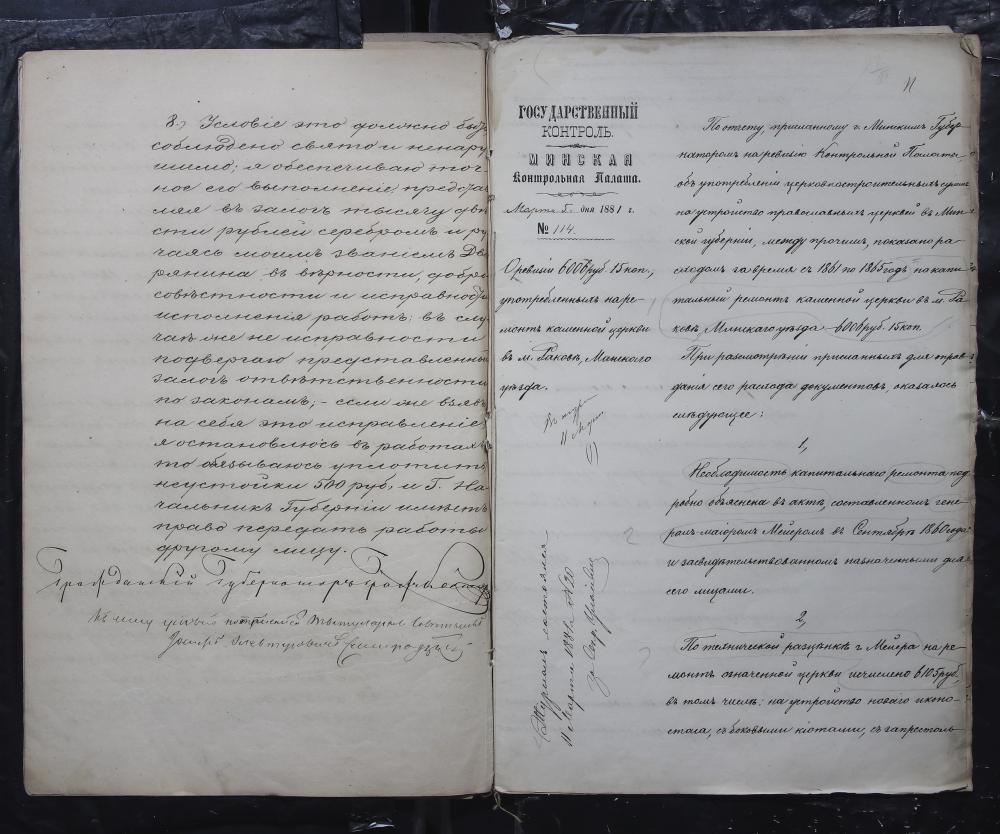 8.) Условіе это должно быть
соблюдено свято и ненару
шимо; я обеспечиваю точ
ное его выполненіе, предста
вляя въ залогъ тысячу две
сти рублей серебромъ и ру
чаясь моимъ званіемъ Дво
рянина въ вѣрности, добро
совѣстности и исправности
исполненія работъ; въ слу
чаѣ же не исправности
подвергаю представленный
залогъ отвѣтственности
по законамъ; – если же взявъ
на себя это исправленіе
я остановлюсь въ работахъ
то обязываюсь уплотить
неустойки 500 руб. и Г. На
чальникъ Губерніи имѣетъ
право передать работы
другому лицу.
Гражданскій Губернаторъ Графъ
Къ сему условію Титулярный Совѣтникъ
11
ГОСУДАРСТВЕННЫЙ
КОНТРОЛЬ.
МИНСКАЯ
Контрольная Палата.
Марта 5 дня 1881 г.
№ 114.
О ревизіи 6006 руб. 15 коп.,
употребленныхъ на ре-
монтъ каменной церкви
въ м. Раковѣ, Минскаго
уѣзда.
Журналъ состоялся
11 Марта 1881 г. № 20
За Секр.
По отчету, присланному г. Минскимъ Губер-
наторомъ на ревизію Контрольной Палаты
объ употребленіи церковностроительныхъ суммъ
на устройство православныхъ церквей въ Мин-
ской губерніи, между прочимъ, показано ра-
сходомъ за время съ 1861 по 1865 годъ на капи-
тальный ремонтъ каменной церкви въ м. Ра-
ковѣ, Минскаго уѣзда – 6006 руб. 15 коп.
При разсмотрѣніи присланныхъ для оправ-
данія сего расхода документовъ, оказалось
слѣдующее:
1,
Необходимость капитальнаго ремонта под-
робно объяснена въ актѣ, составленномъ гене-
ралъ-маіоромъ Мейеромъ въ Сентябрѣ 1860 года
и засвидѣтельствованномъ назначенными для
сего лицами.
2,
По технической расцѣнкѣ г. Мейера на ре-
монтъ означенной церкви исчислено 6105 руб.,
въ томъ числѣ: на устройство новаго иконо-
стаса, съ боковыми кіотами, съ запрестоль-